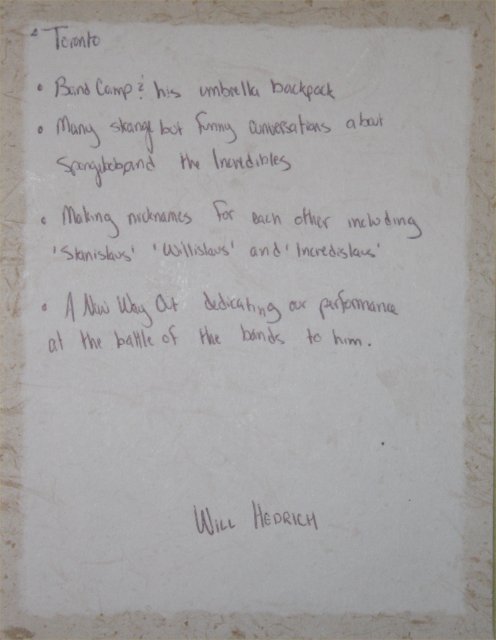 • Toronto
• Band Camp & his umbrella backpack
• Many strange but funny conversations about
Spongebob and the Incredibles
• Making nicknames for each other including
'Stanislaus' 'Willislaus' and 'Incredislaus'
• A New Way Out dedicating our performance
at the battle of the bands to him.
WILL HEDRICH